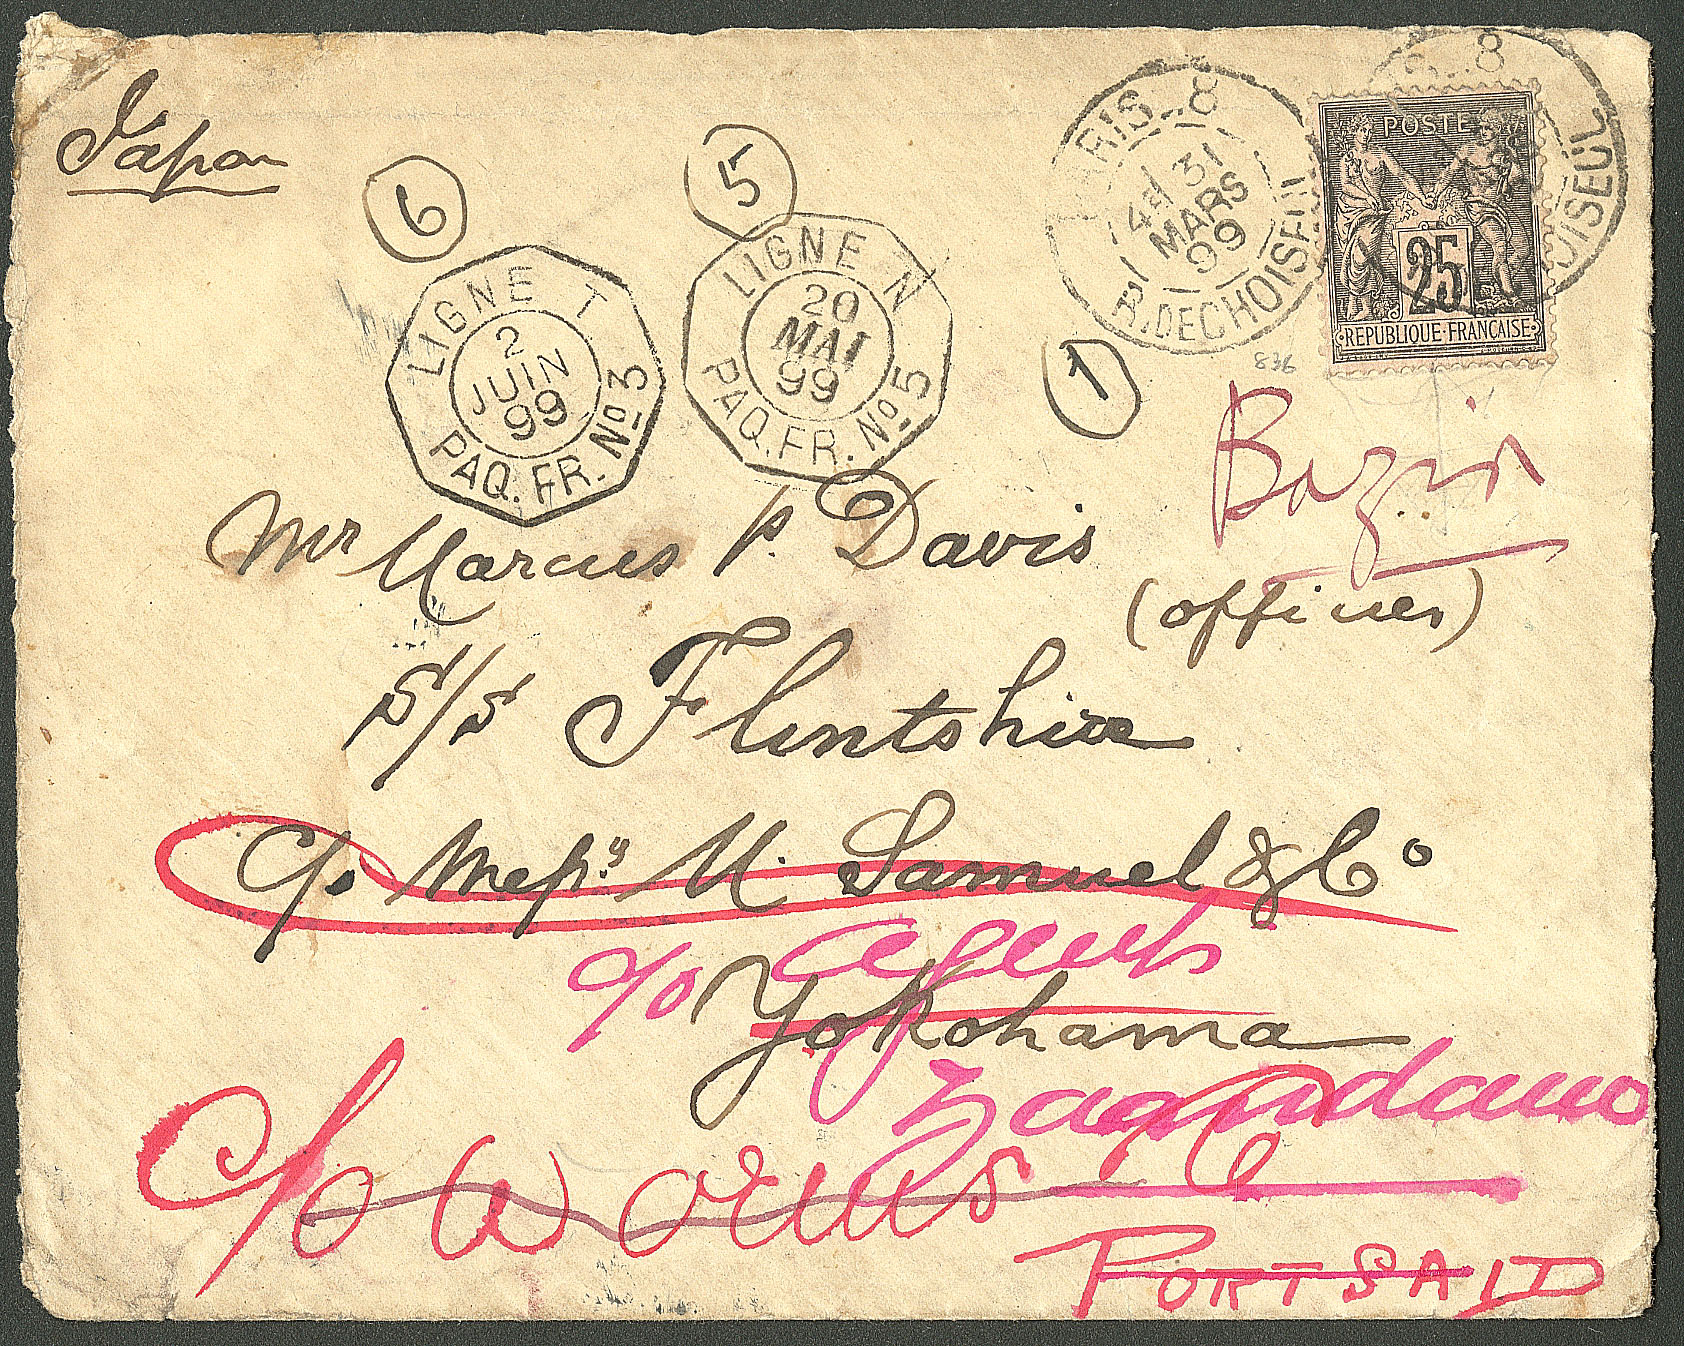 Japan
6
5
1
LIGNE T
2
JUIN
99
PAQ. FR. No 3
LIGNE N
20
MAI
99
PAQ. FR. No 5
PARIS..8
31
MARS
99
R. DE CHOISEUL
8
OISEUL
POSTE
25
REPUBLIQUE FRANÇAISE
836
Bazin
Mr Marcus P. Davis
(officer)
S/S Flintshire
C/o Mess.rs M. Samuel & Co
c/o Agents
Yokohama
Zagodamo
C/o Worms & Co
PORT SAID